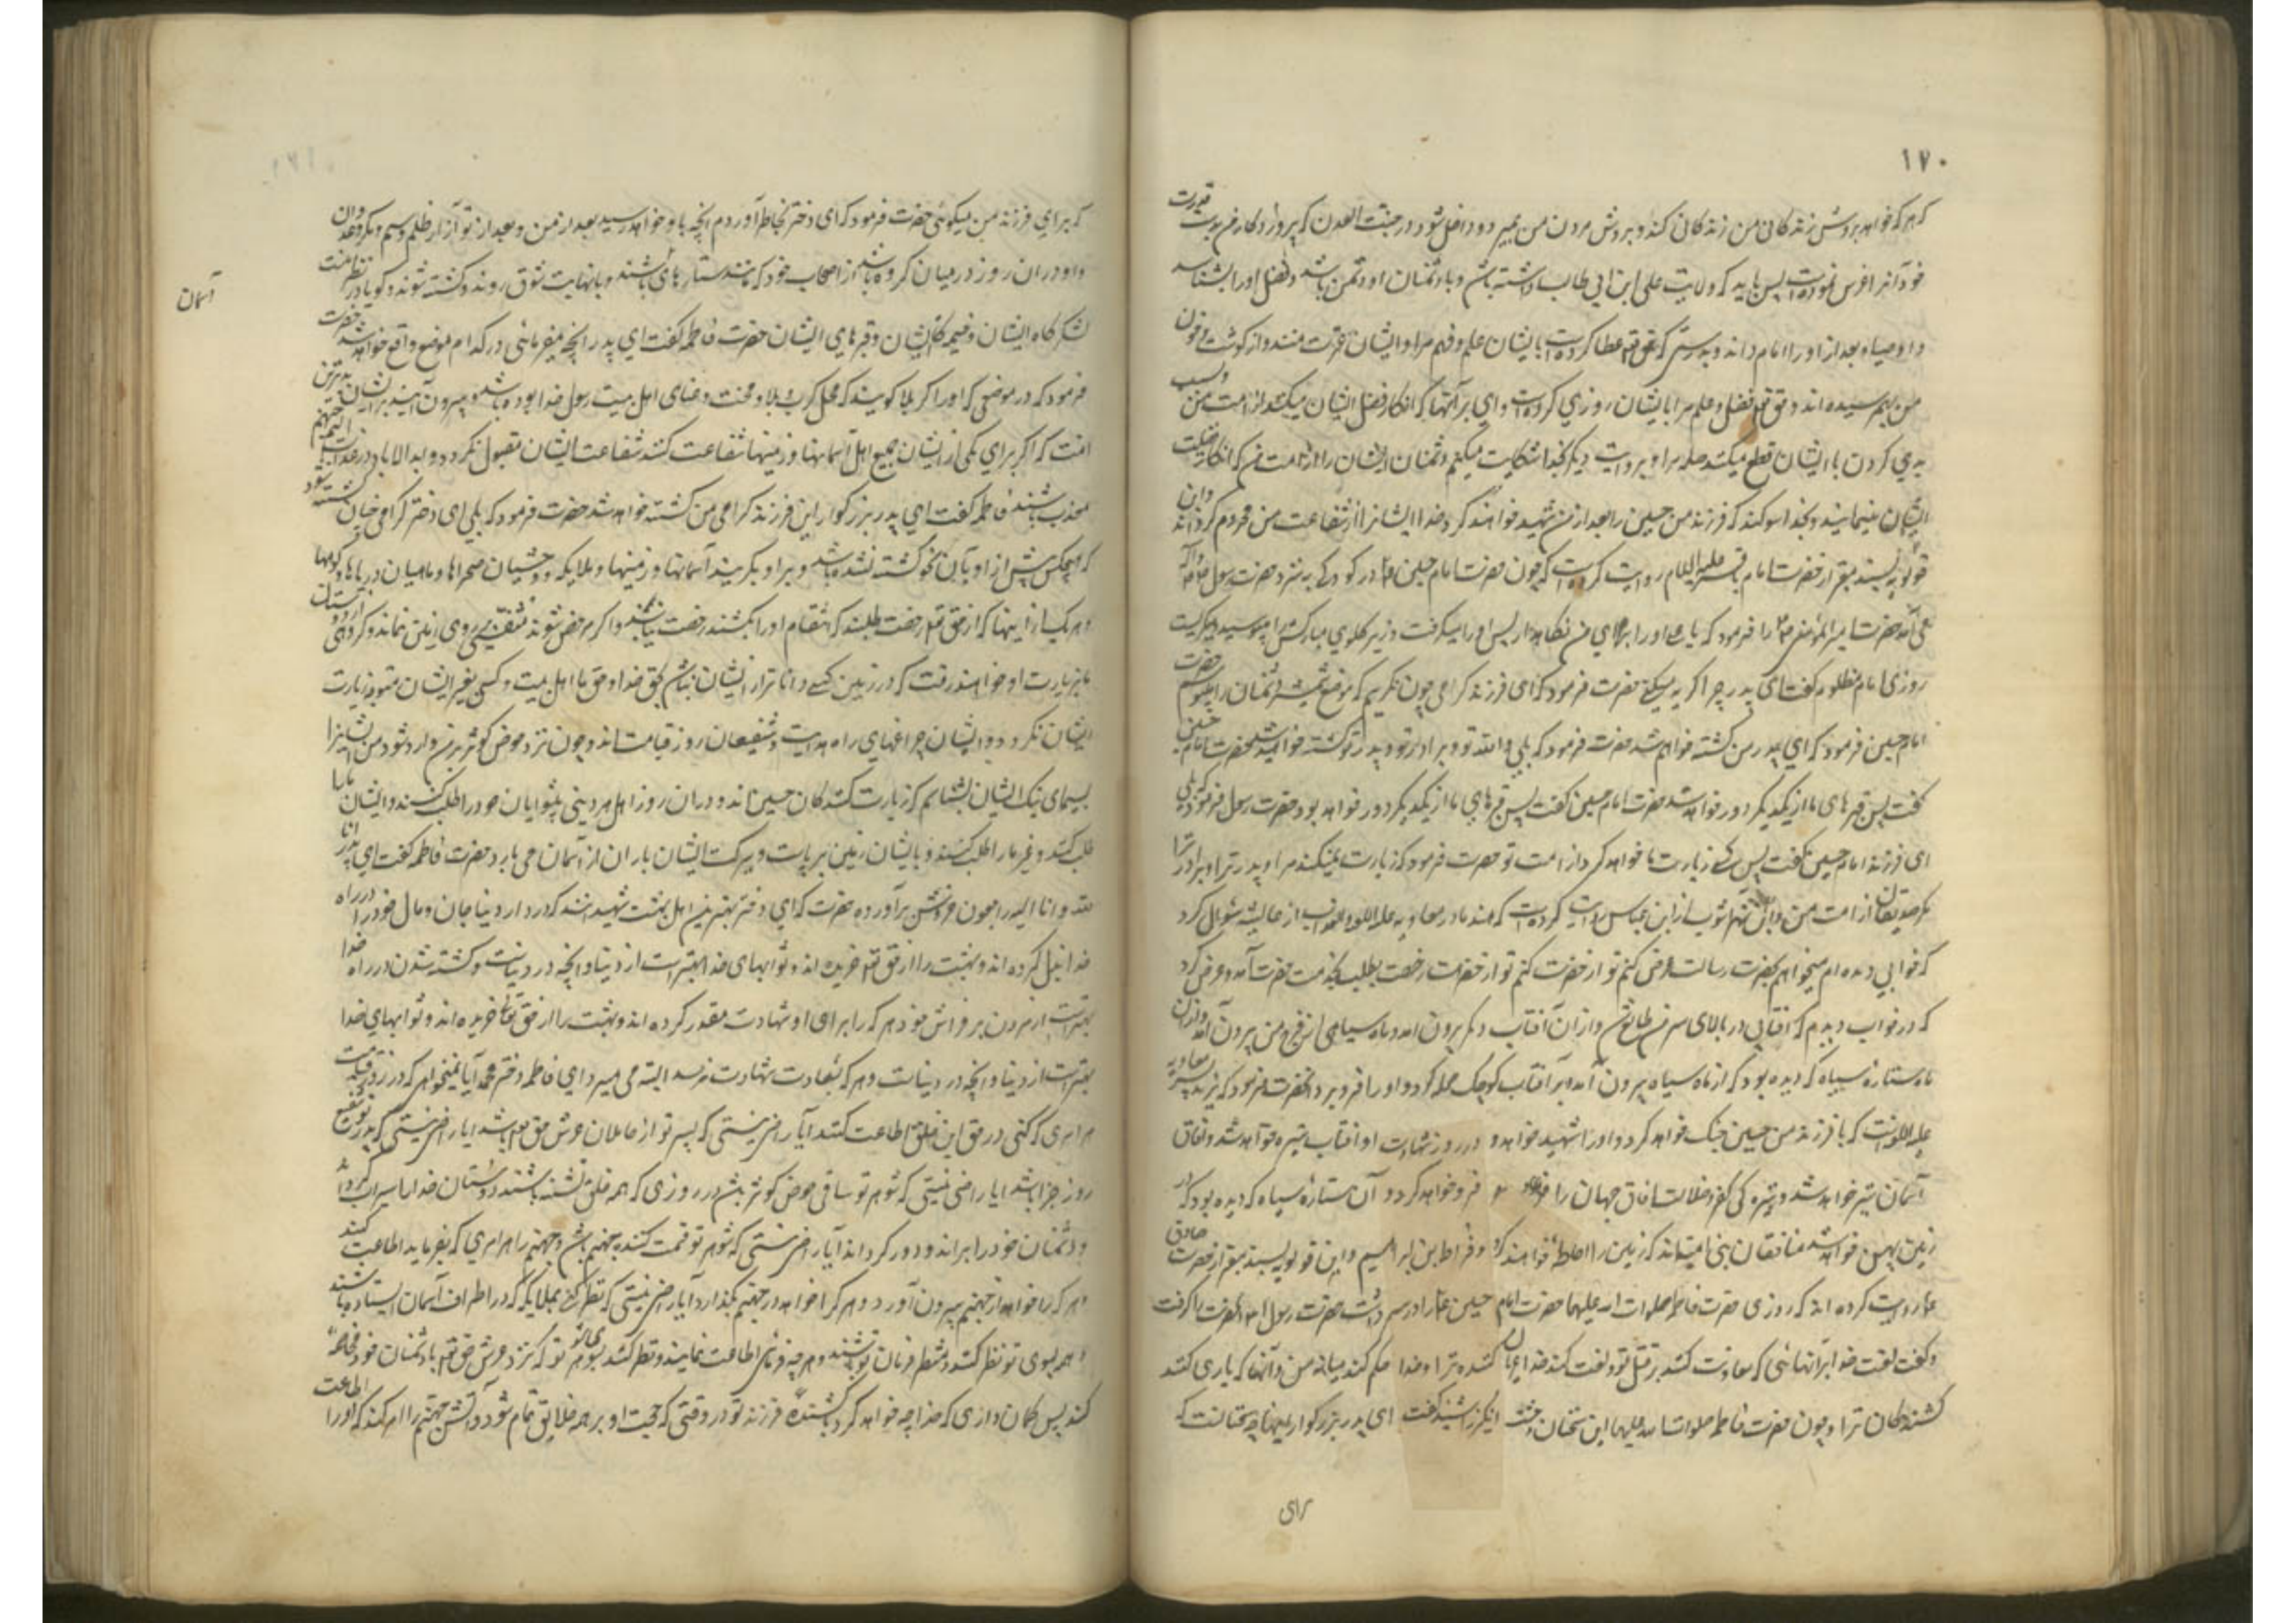 ۱۷۰
که هر که خواهد بروش زندکانی من زندکانی کند و بروش مردن من بمیرد و داخل شود در جنت العدن که پروردکار من بدست قدرت
خود آنرا غرس نموده است پس باید که ولایت علی ابن ابی طالب داشته باشد و با دشمنان او دشمن باشد و فضل او را بشناسد
و اوصیاء بعد از او را امام داند و بدرستی که حق تع عطا کرده است بایشان علم و فهم مرا و ایشان عترت منند و از کوشت و خون
من بهم رسیده اند و حق تع فضل و علم مرا بایشان روزی کرده است وای بر آنها که انکار فضل ایشان میکنند از امت من و بسبب
بدی کردن با ایشان قطع میکنند صله مرا و بروایت دیکر بخدا شکایت میکنم دشمنان ایشان را از امت من که انکار فضیلت
ایشان مینمایند و بخدا سوکند که فرزند من حسین را بعد از من شهید خواهند کرد و خدا ایشانرا از شفاعت من محروم کرداند و ابن
قولویه بسند معتبر از حضرت امام باقر علیه السلام روایت کرده است که چون حضرت امام حسین ع در کودکی به نزد حضرت رسول ص
می آمد حضرت امیر المؤمنین ع را فرمود که یا علی او را برای من نکاهدار پس او را میکرفت و زیر کلوی مبارکش را میبوسید و میکریست
روزی امام مظلوم کفت ای پدر چرا کریه میکنی حضرت فرمود که ای فرزند کرامی چون نکریم که موضع شمشیر دشمنان را میبوسم حضرت
امام حسین فرمود که ای پدر من کشته خواهم شد حضرت فرمود که بلی والله تو و برادر تو و پدر تو کشته خواهید شد حضرت امام حسین
کفت پس قبرهای ما از یکدیکر دور خواهد شد حضرت امام حسین کفت پس قبرهای ما از یکدیکر دور خواهد بود حضرت رسول فرمود که بلی
ای فرزند امام حسین کفت پس که زیارت ما خواهد کرد از امت تو حضرت فرمود که زیارت نمیکنند مرا و پدر ترا و برادر ترا
مکر صدیقان از امت من و ابن شهراشوب از ابن عباس روایت کرده است که هند مادر معاویه علیه اللعنه از عایشه سؤال کرد
که خوابی دیده ام میخواهم بحضرت رسالت عرض کنم تو از حضرت رخصت بطلب بخدمت حضرت آمد و عرض کرد
که در خواب دیدم که افتابی در بالای سر من طالع شد و از آن آفتاب دیکر بیرون امد و ماه سیاهی از فرج من بیرون آمد و از ان
ماه ستاره سیاه که دیده بود که از ماه سیاه بیرون آمد بر آفتاب کوچک حمله کرد و او را فرو برد حضرت فرمود که یزید پسر معاویه
علیه اللعنة که با فرزند من حسین جنک خواهد کرد و او را شهید خواهد کرد در روز شهادت او افتاب تیره خواهد شد و افاق
آسمان تیره خواهد شد و تیره کی کفر و ضلالت افاق جهان را فرو خواهد کرد و آن ستارهٔ سیاه که دیده بود که در
زمین پهن خواهد شد منافقان بنی امیه اند که زمین را احاطه خواهند کرد و فرات بن ابراهیم و ابن قولویه بسند معتبر از حضرت صادق
ع روایت کرده اند که روزی حضرت فاطمه صلوات الله علیها حضرت امام حسین ع را در بر داشت حضرت رسول ص آنحضرت را کرفت
و کفت لعنت خدا بر آنهائی که معاونت کنند بر قتل تو و لعنت کند خدا اعوان کشنده ترا و خدا حکم کند میانه من و آنها که یاری کنند
کشندکان ترا و چون حضرت فاطمه صلوات الله علیها این سخنان وحشت انکیز را شنید کفت ای پدر بزرکوار اینها چه سخنانست که
برای
که برای فرزند من میکوئی حضرت فرمود که ای دختر بخاطر آوردم انچه باو خواهد رسید بعد از من و بعد از تو از آزار و ظلم و ستم و مکر و عدوان
و او در ان روز در میان کروه باشد از اصحاب خود که مانند ستارهای باشند و بانهایت شوق روند و کشته شوند و کویا در نظر منست
آسمان
لشکرکاه ایشان و خیمه کاه ایشان و قبرهای ایشان حضرت فاطمه کفت ای پدر انچه میفرمائی در کدام موضع واقع خواهد شد حضرت
فرمود که در موضعی که او را کربلا کویند که محل کرب و بلا و محنت و عنای اهل بیت رسول خدا بوده باشد و بیرون آیند بر ایشان بدترین
امت که اکر برای یکی از ایشان جمیع اهل آسمانها و زمینها شفاعت کنند شفاعت ایشان مقبول نکردد و ابد الاباد در عذاب الیم جهنم
معذب باشند فاطمه کفت ای پدر بزرکوار این فرزند کرامی من کشته خواهد شد حضرت فرمود که بلی ای دختر کرامی چنان کشته شود
که هیچکس پیش از او بآن نحو کشته نشده باشد و بر او بکریند آسمانها و زمینها و ملایکه و وحشیان صحراها و ماهیان دریاها و کوهها
و هر یک از اینها که از حق تع رخصت طلبند که انتقام او را بکشند رخصت نیابند و اکر مرخص شوند متنفسی بر روی زمین نماند و کروهی از دوستان
ما بزیارت او خواهند رفت که در زمین کسی داناتر از ایشان نباشد بحق خدا و حق ما اهل بیت و کسی بغیر ایشان متوجه زیارت
ایشان نکردد و ایشان چراغهای راه هدایت و شفیعان روز قیامت اند و چون نزد حوض کوثر بر من وارد شوند من ایشانرا
بسیمای نیک ایشان بشناسم که زیارت کنندکان حسین اند و دران روز اهل هر دینی پیشوایان خود را طلب کنند و ایشان ما را
طلب کنند و غیر ما را طلب نکنند و بایشان زمین برپاست و ببرکت ایشان باران از آسمان می بارد حضرت فاطمه کفت ای پدر انا
لله و انا الیه راجعون خروش برآورد حضرت کفت ای دختر بهترین اهل بهشت شهیدانند که در دار دنیا جان و مال خود را در راه
خدا بذل کرده اند و بهشت را از حق تع خریده اند و ثوابهای خدا بهتر است از دنیا و انچه در دنیاست و کشته شدن در راه خدا
بهتر است از مردن بر فراش خود هر که را برای او شهادت مقدر کرده اند و بهشت را از حق تعالی خریده اند و ثوابهای خدا
بهتر است از دنیا و انچه در دنیاست و هر که بسعادت شهادت نرسد البته می میرد ای فاطمه دختر محمد آیا نمیخواهی که در روز قیامت
هر امری که کنی در حق این خلق اطاعت کنند آیا راضی نیستی که پسر تو از حاملان عرش حق تع باشد ایا راضی نیستی که پدر تو شفیع
روز جزا باشد ایا راضی نیستی که شوهر تو ساقی حوض کوثر باشد در روزی که همه خلق تشنه باشند دوستان خدا را سیراب کرداند
و دشمنان خود را براند و دور کرداند آیا راضی نیستی که شوهر تو قسمت کننده جهنم باشد و جهنم را هر امری که بفرماید اطاعت کند
و هر که را خواهد از جهنم بیرون آورد و هر کرا خواهد در جهنم بکذارد آیا راضی نیستی که نظر کنی بملایکه که در اطراف آسمان ایستاده باشند
و همه بسوی تو نظر کنند و منتظر فرمان تو باشند و هر چه فرمائی اطاعت نمایند و نظر کنند بسوی شوهر تو که نزد عرش حق تع با دشمنان خود مخاصمه
کند پس کمان داری که خدا چه خواهد کرد با کشندهٔ فرزند تو در وقتی که حجت او بر همه خلایق تمام شود و آتش جهنم را امر کند که او را اطاعت